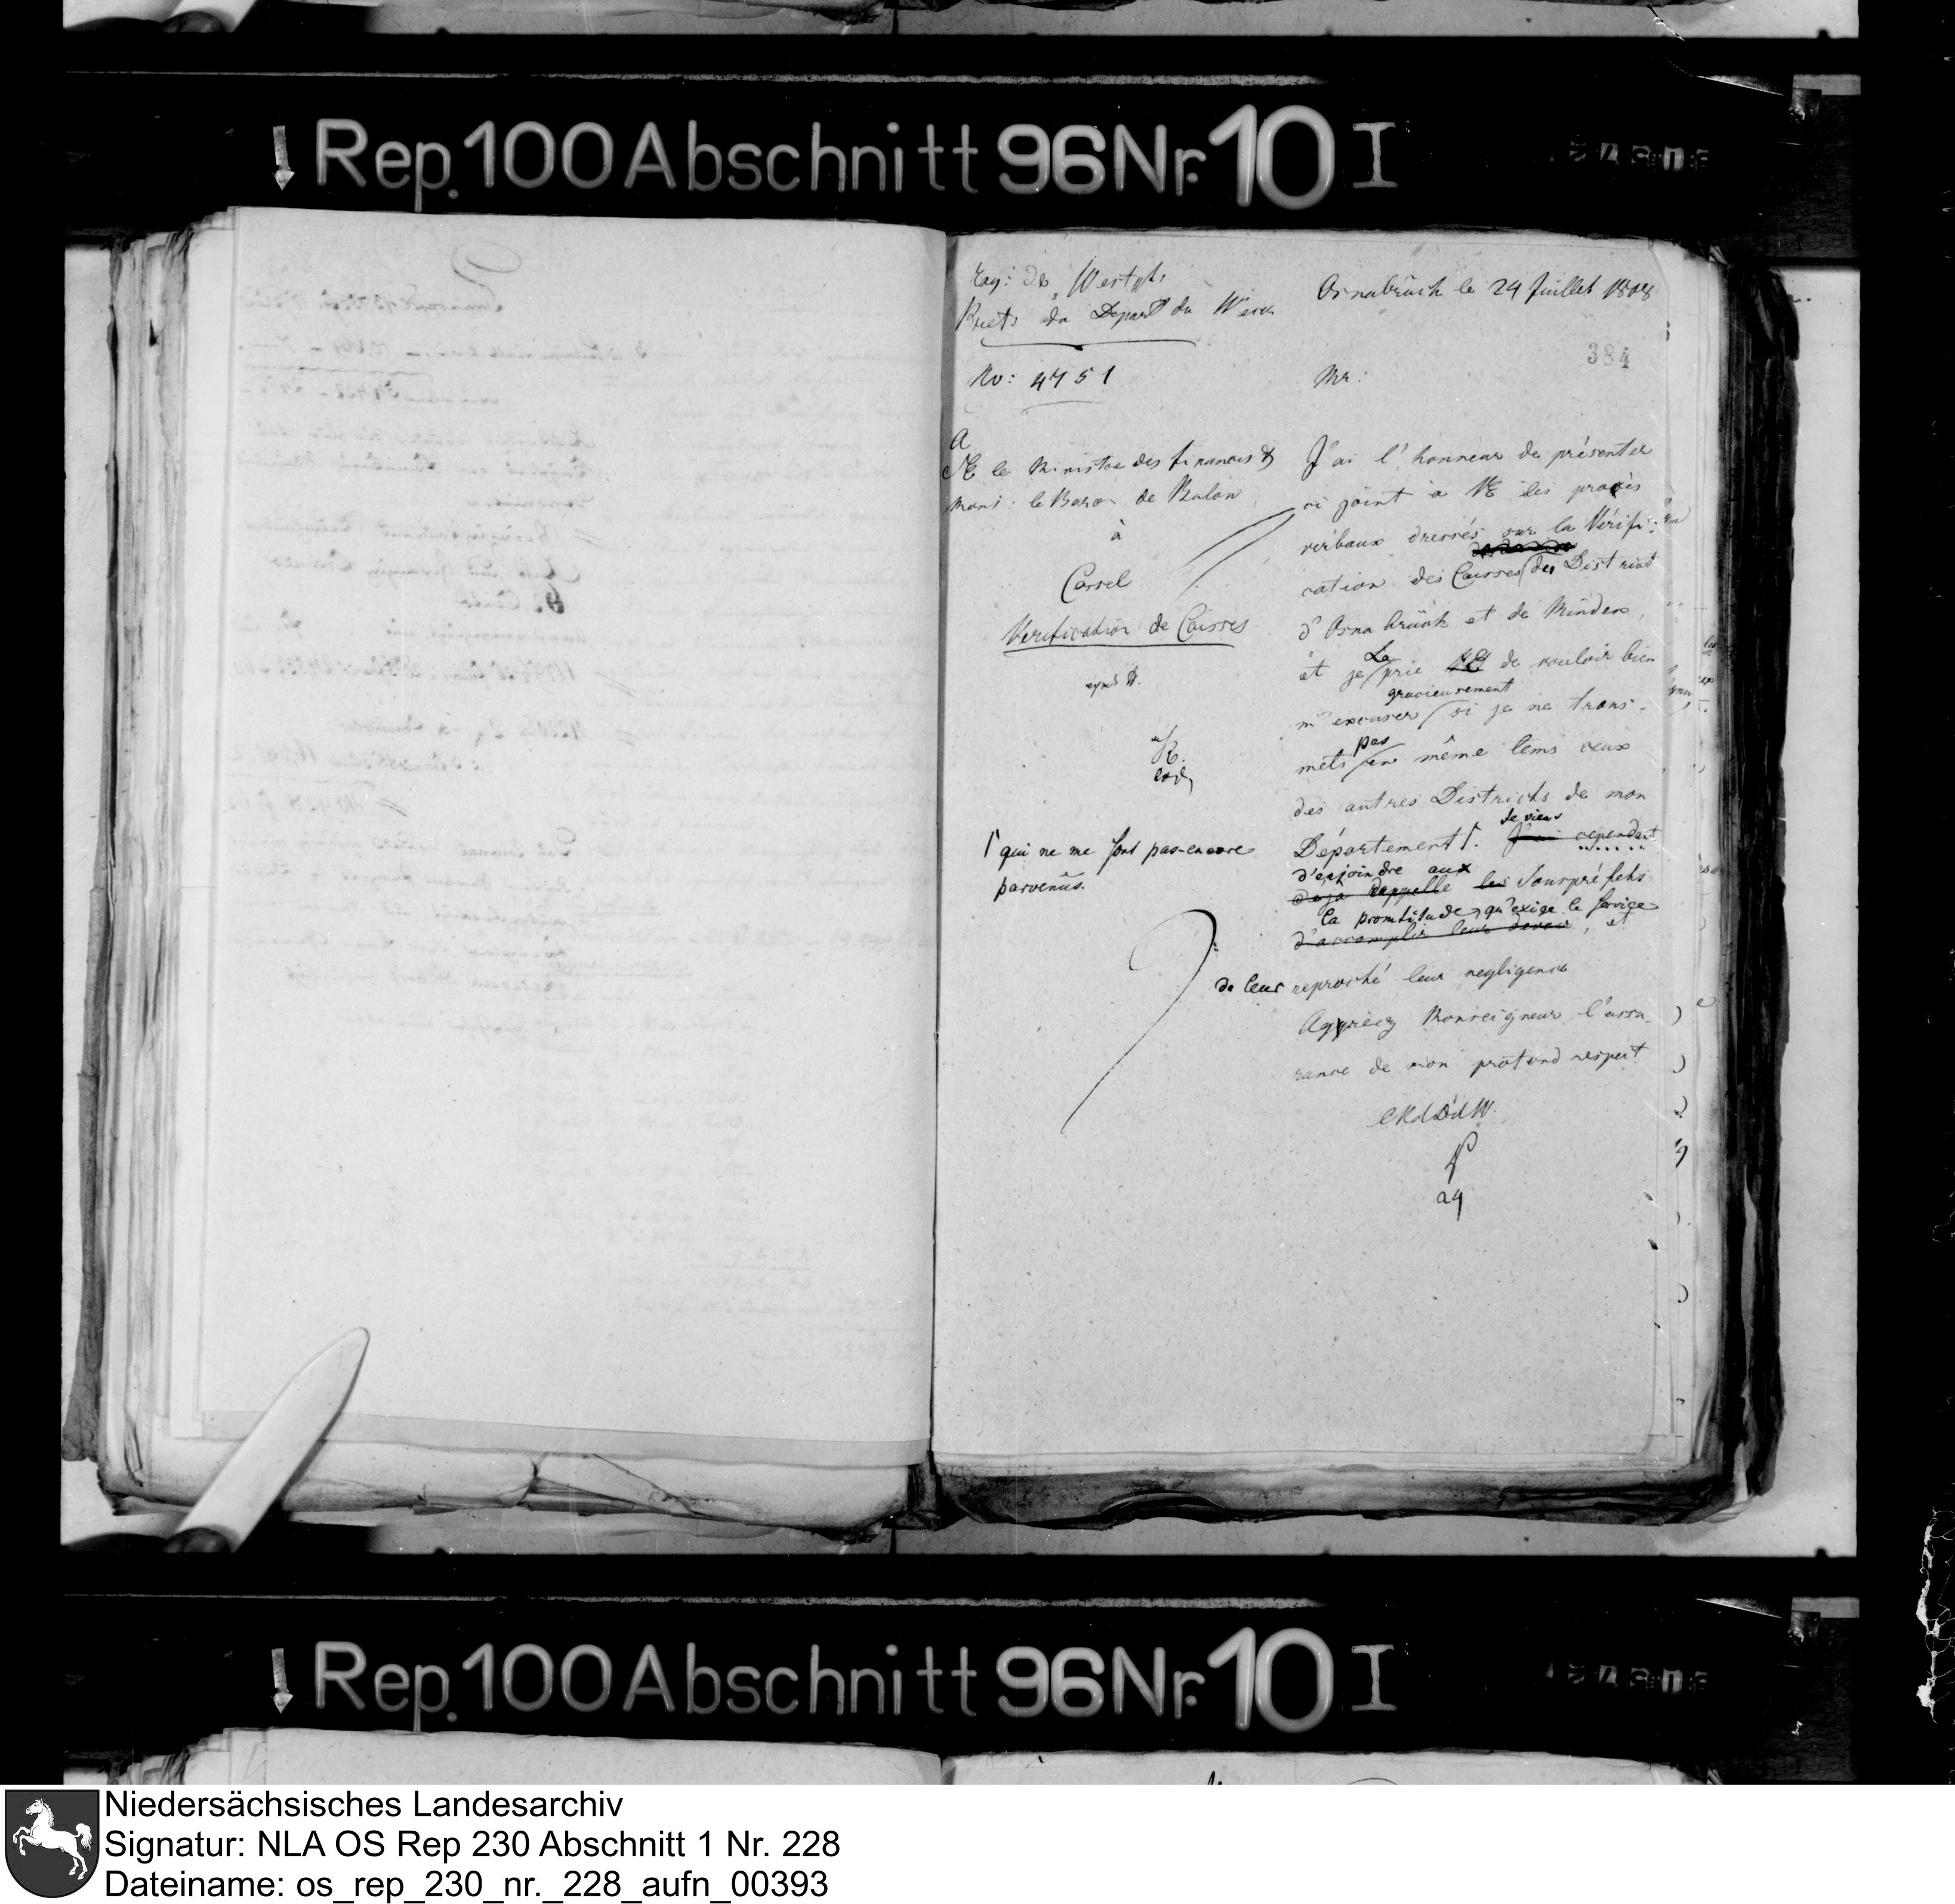 Rep. 100 Abschnitt 96 Nr. 10 I
Roy: de Westph
Préf: du Depart du Weser
Osnabrück le 24 Juillet 1808
384
No: 4751
Mr:
A
SE le Ministre des finances &
Mons: le Baron de Bulow
à
Cassel
Verification de Caisses
J'ai l'honneur de présenter
ci joint à VE les procès
verbaux dressés sur la Vérifi-
cation des Caisses du District
d'Osnabrück et de Minden,
et je La prie VE de vouloir bien
gracieusement
m'excuser si je ne trans-
mets pas en même tems ceux
des autres Districts de mon
Je viens
Département Γ. J'ai cependant
Γ qui ne me sont pas encore
parvenus.
d'enjoindre aux
deja rappelle les Souspréfets
la promtitude, qu'exige le service
d'accomplir leur devoir, et
de leur reproché leur negligence
Agréez Monseigneur l'assu-
rance de mon profond respect
Rep. 100 Abschnitt 96 Nr. 10 I
Niedersächsisches Landesarchiv
Signatur: NLA OS Rep 230 Abschnitt 1 Nr. 228
Dateiname: os_rep_230_nr._228_aufn_00393